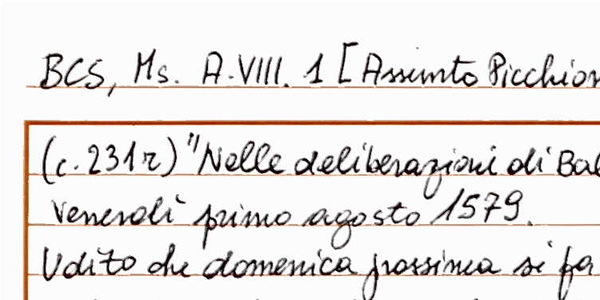 BCS, Ms. A.VIII. 1 [Assunto Picchion
(c.231r) "Nelle deliberazioni di Bal
Venerdì primo agosto 1579.
Udito che domenica prossima si fa